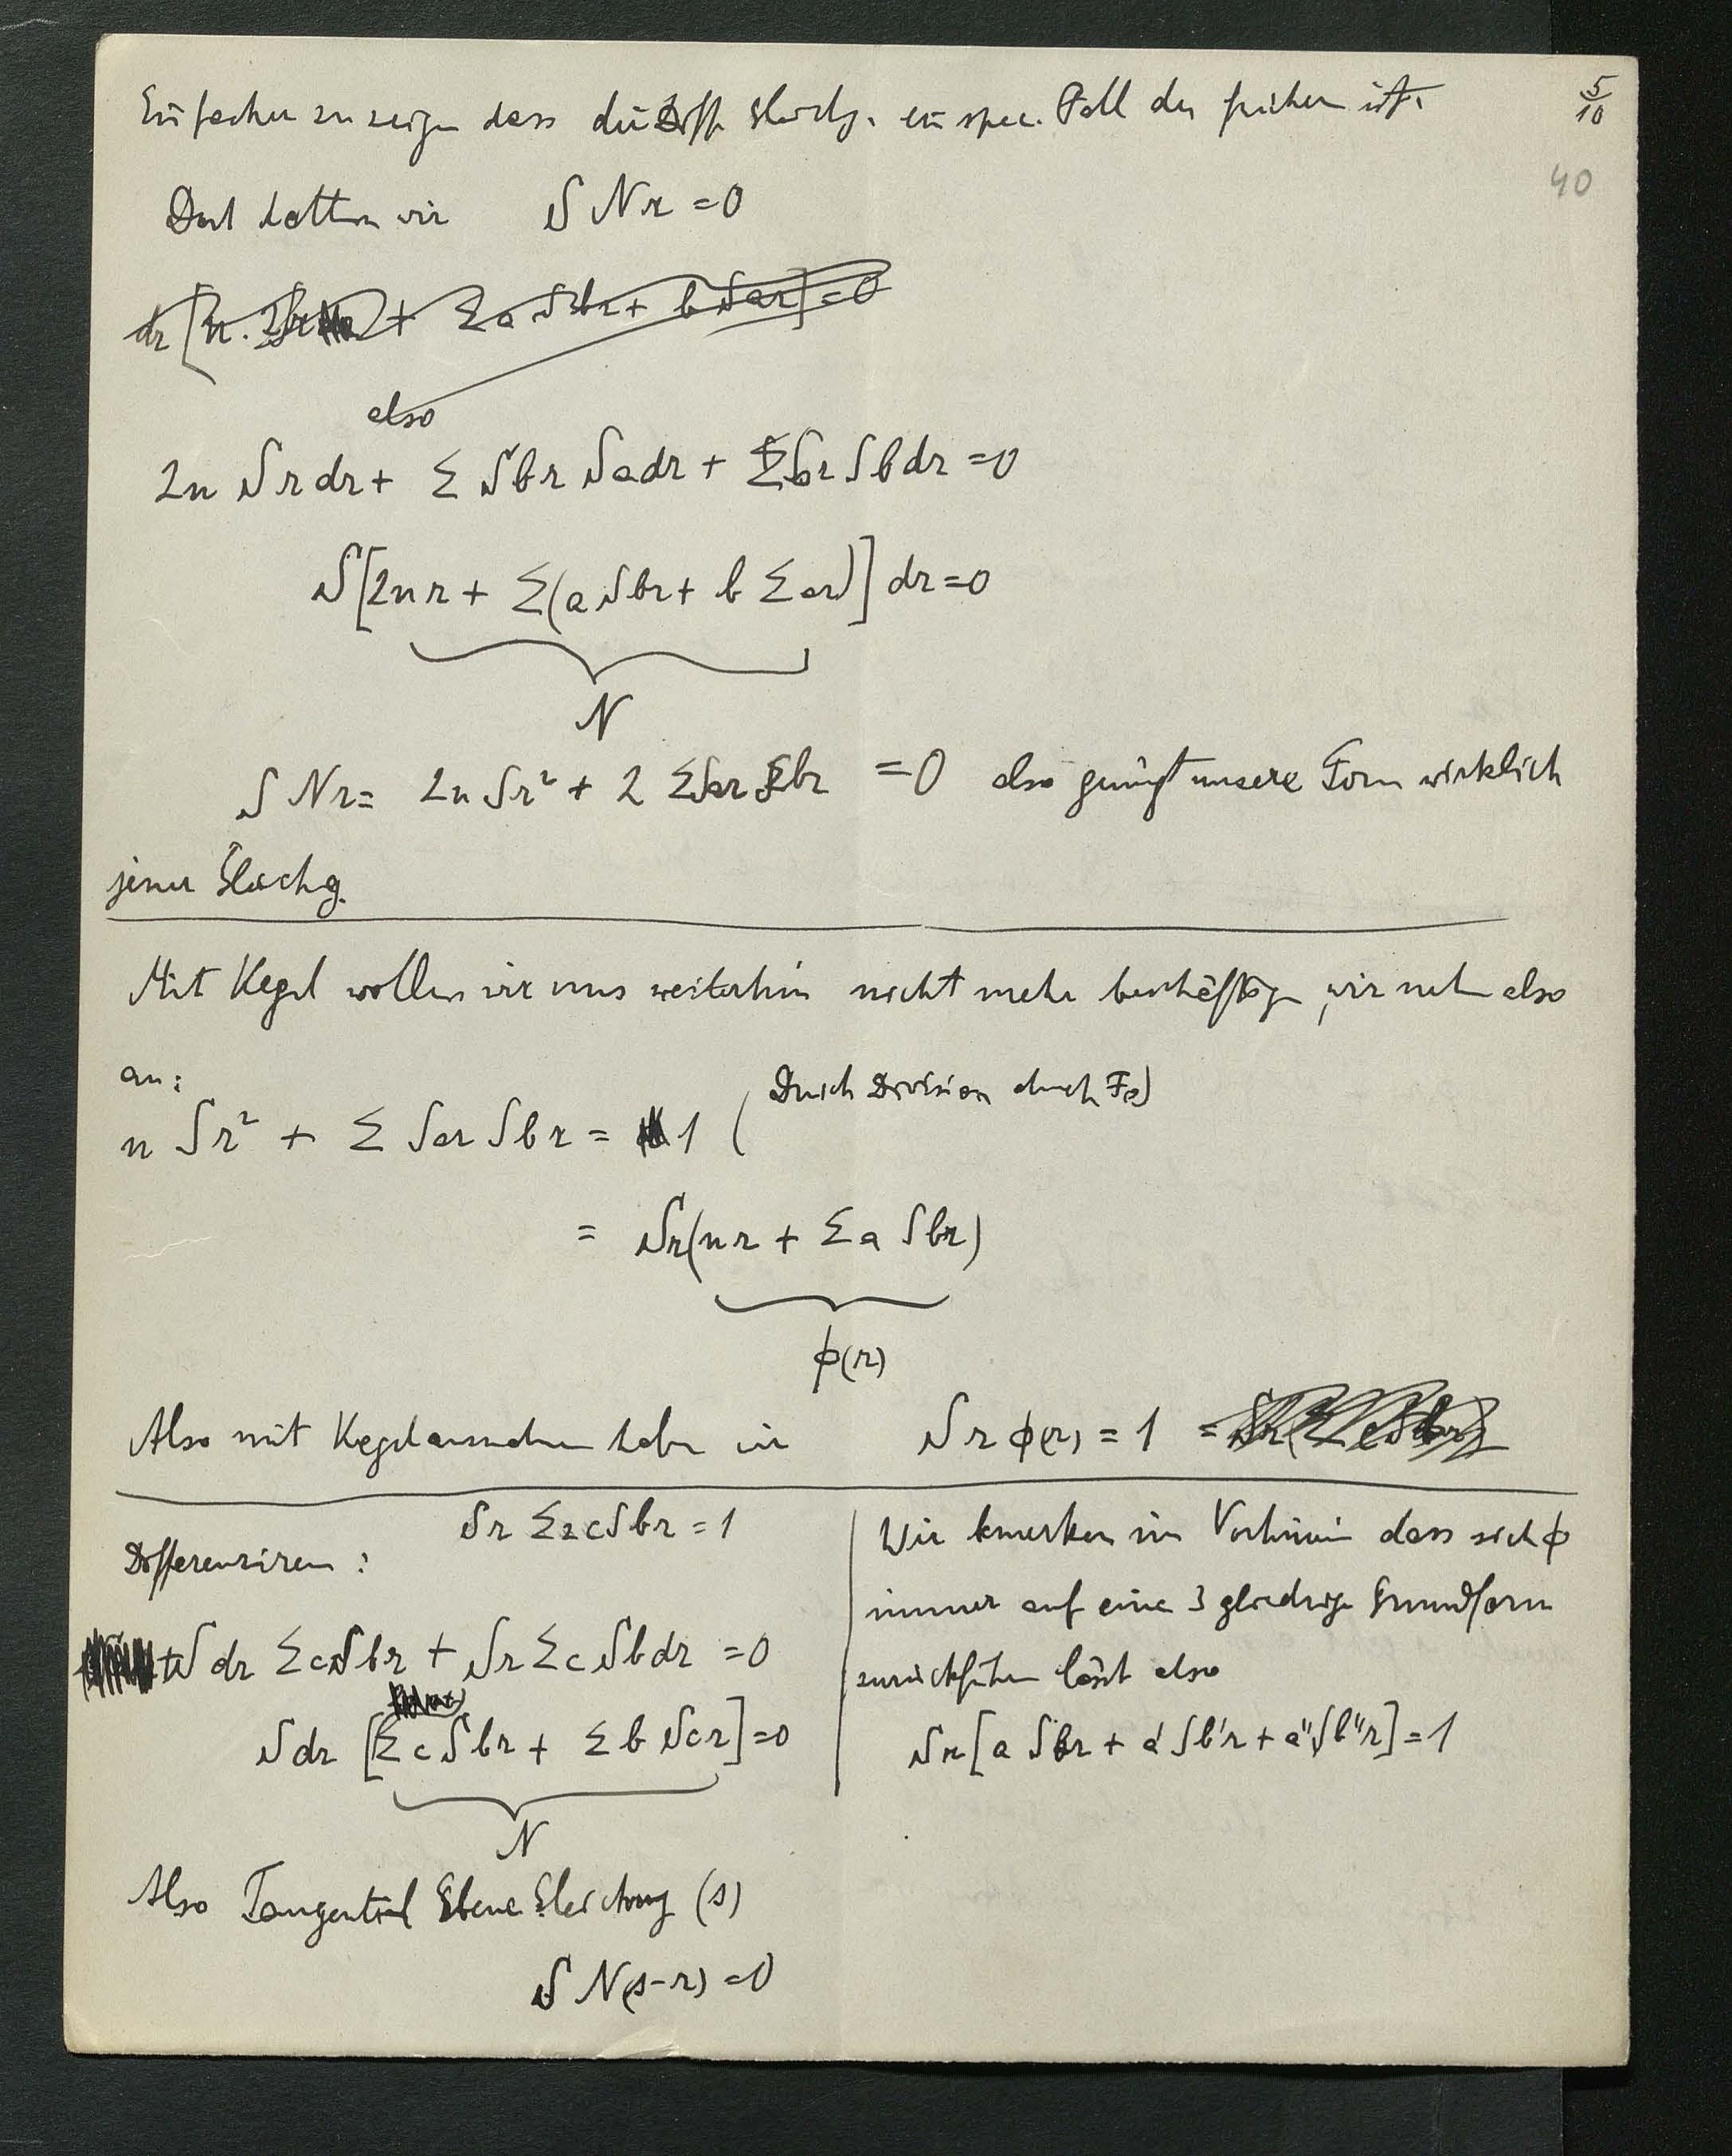 Einfacher zu zeigen dass die Diff Gleichg. ein spec. Fall der früheren ist.
5/10
40
Dort hatten wir S Nr = 0
also
2n S r dr + Σ Sbr Sadr + Σ Sar Sbdr = 0
S[2nr + Σ(a Sbr + b Σar)] dr = 0
N
S Nr = 2n Sr² + 2 ΣSar Sbr = 0 also genügt unsere Form wirklich
jener Gleichg.
Mit Kegel wollen wir uns weiterhin nicht mehr beschäftigen, wir nehm also
an:
(Durch Division durch
n Sr² + Σ Sar Sbr = 1
= Sr(nr + Σa Sbr)
ϕ(r)
Also mit Kegelausnahme haben wir S r ϕ(r) = 1
Sr Σ cSbr = 1
Differenziren:
S dr ΣcSbr + Sr Σc Sbdr = 0
Sdr [Σ c Sbr + Σ b Scr] = 0
N
Also Tangential Ebene Gleichung (s)
S N(s-r) = 0
Wir bemerken im Vorhinein dass sich ϕ
immer auf eine 3 gliedrige Grundform
zurückführen lässt also
Sr[a Sbr + a' Sb'r + a'' Sb''r] = 1